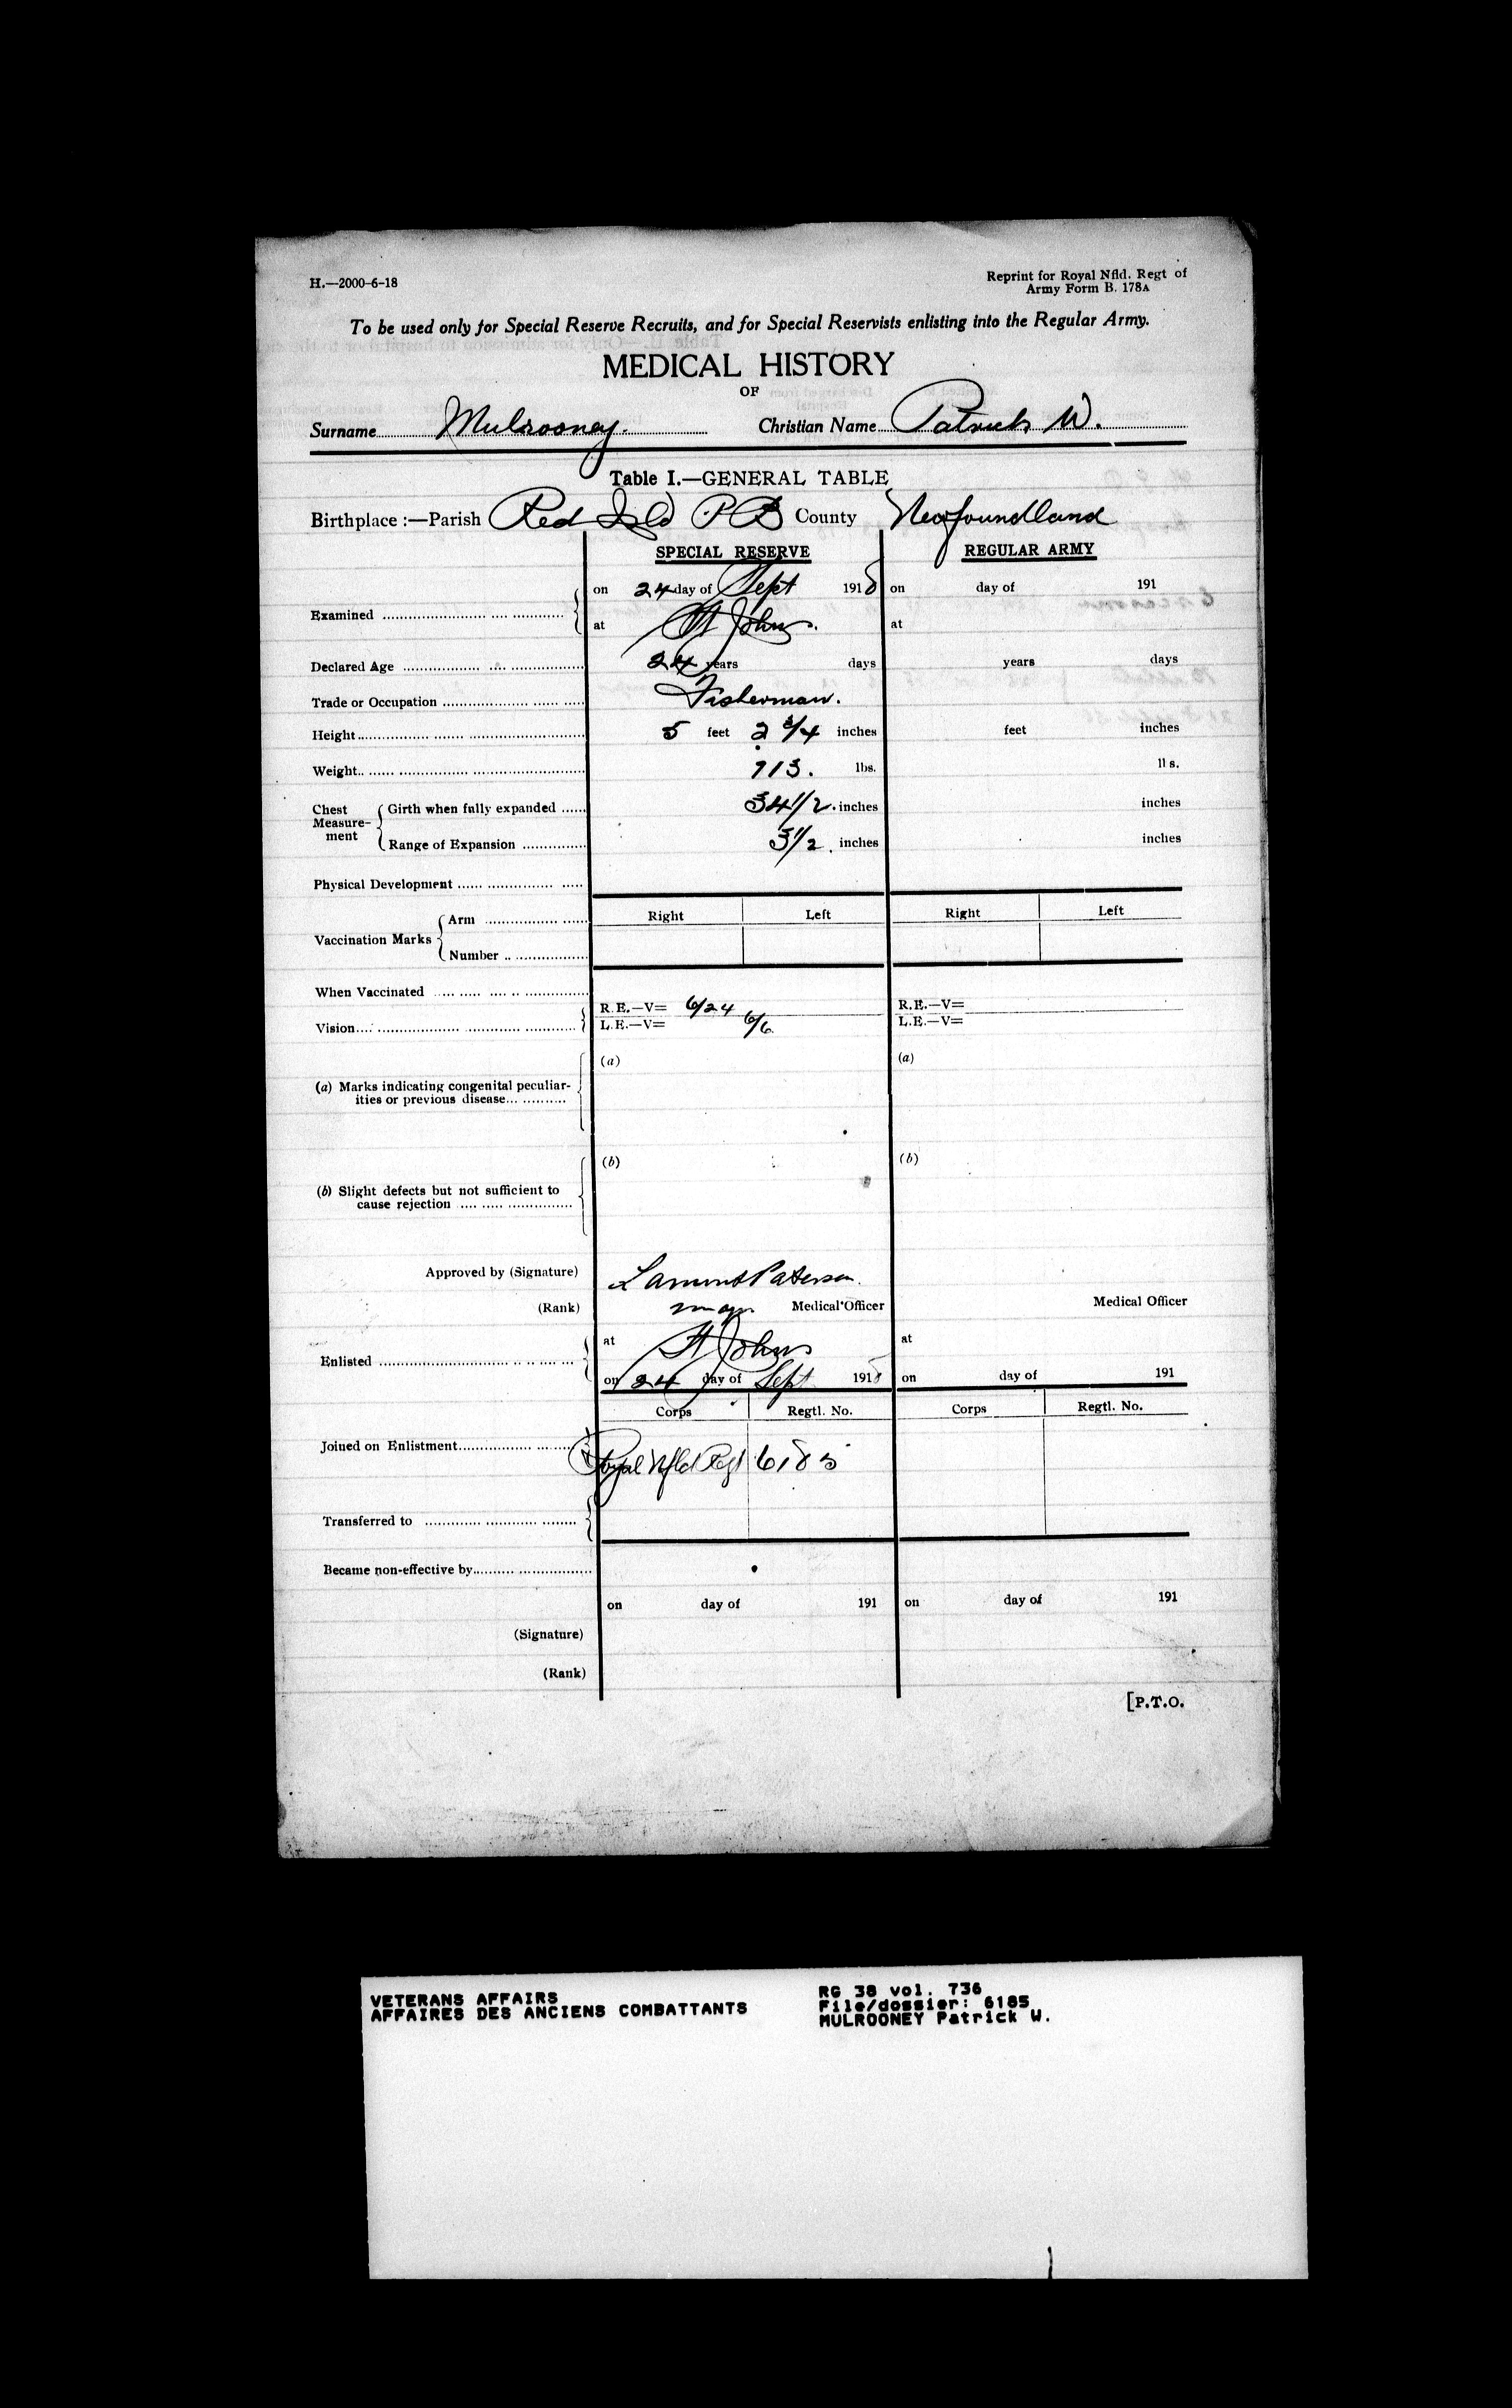 H.—2000-6-18
Reprint for Royal Nfld. Regt of
Army Form B. 178A
To be used only for Special Reserve Recruits, and for Special Reservists enlisting into the Regular Army.
MEDICAL HISTORY
OF
Surname Mulrooney. Christian Name Patrick W.
Table I.—GENERAL TABLE
Birthplace :—Parish Red Isld P B County Newfoundland
SPECIAL RESERVE REGULAR ARMY
on 24 day of Sept 1918 on day of 191
Examined
at St Johns. at
Declared Age 24 years days years days
Trade or Occupation Fisherman.
Height 5 feet 2 3/4 inches feet inches
Weight 113. lbs. lbs.
Chest Measurement Girth when fully expanded 34 1/2. inches inches
Range of Expansion 3 1/2. inches inches
Physical Development
Vaccination Marks Arm Right Left Right Left
Number
When Vaccinated
Vision R.E.—V= 6/24 R.E.—V=
L.E.—V= 6/6 L.E.—V=
(a) (a)
(a) Marks indicating congenital peculiar-
ities or previous disease
(b) (b)
(b) Slight defects but not sufficient to
cause rejection
Approved by (Signature) Lamont Paterson.
(Rank) Major Medical Officer Medical Officer
at St Johns at
Enlisted
on 24 day of Sept 1918 on day of 191
Corps Regtl. No. Corps Regtl. No.
Joined on Enlistment Royal Nfld Regt 6185
Transferred to
Became non-effective by
on day of 191 on day of 191
(Signature)
(Rank)
[P.T.O.
VETERANS AFFAIRS RG 38 vol. 736
AFFAIRES DES ANCIENS COMBATTANTS File/dossier: 6185
MULROONEY Patrick W.